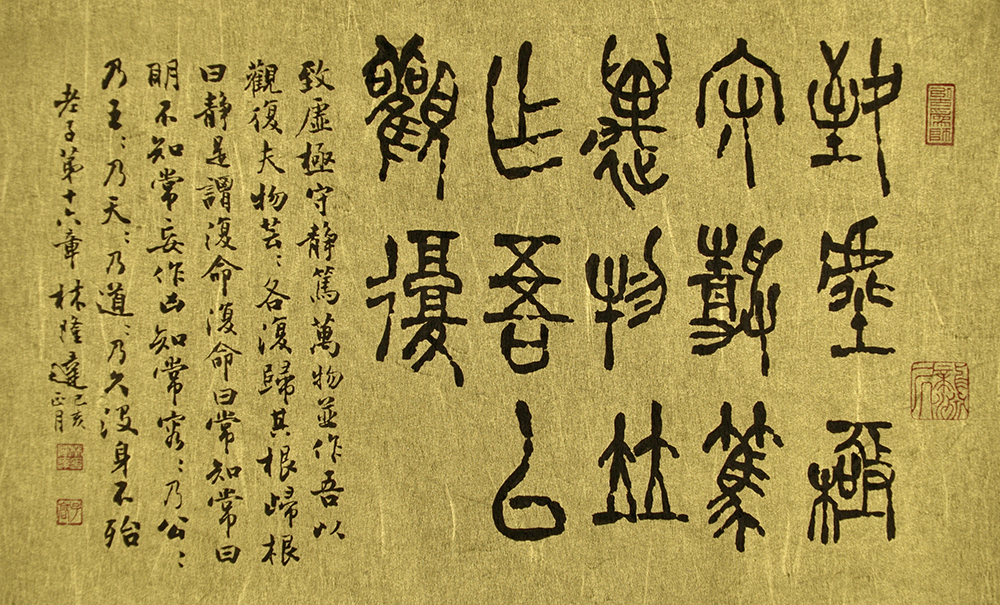 致虛極
守靜篤
萬物並
作吾以
觀復
致虛極守靜篤萬物並作吾以
觀復夫物芸〻各復歸其根歸根
曰靜是謂復命復命曰常知常曰
明不知常妄作凶知常容〻乃公〻
乃王〻乃天〻乃道〻乃久沒身不殆
老子第十六章 林隆達 己亥正月